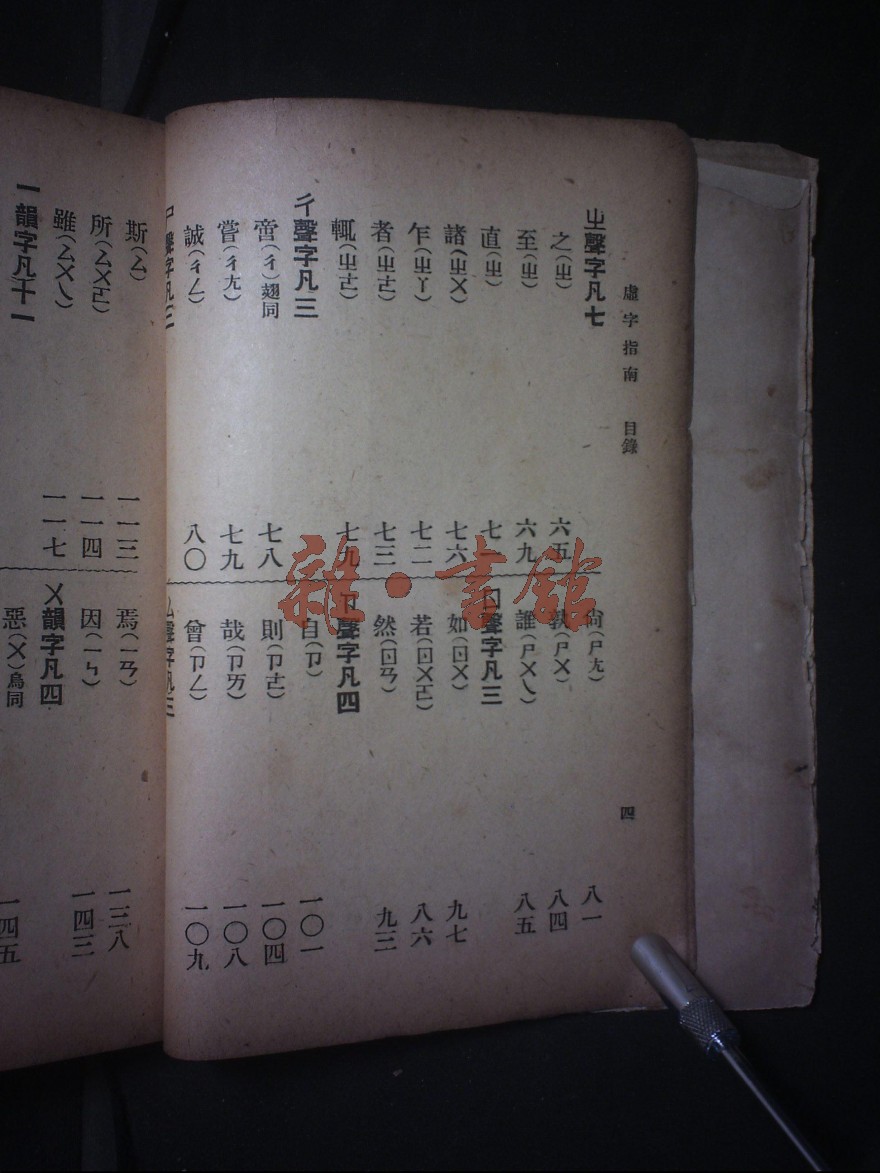 虛字指南 目錄 四
ㄓ聲字凡七
之(ㄓ) 六五
至(ㄓ) 六九
直(ㄓ)
諸(ㄓㄨ) 七六
乍(ㄓㄚ) 七二
者(ㄓㄜ) 七三
輒(ㄓㄜ) 七九
ㄔ聲字凡三
啻(ㄔ)翅同 七八
嘗(ㄔㄤ) 七九
誠(ㄔㄥ) 八〇
ㄕ聲字凡三
尙(ㄕㄤ) 八一
孰(ㄕㄨ) 八四
誰(ㄕㄨㄟ) 八五
ㄖ聲字凡三
如(ㄖㄨ) 九七
若(ㄖㄨㄛ) 八六
然(ㄖㄢ) 九三
ㄗ聲字凡四
自(ㄗ) 一〇一
則(ㄗㄜ) 一〇四
哉(ㄗㄞ) 一〇八
曾(ㄗㄥ) 一〇九
ㄙ聲字凡三
斯(ㄙ) 一一三
所(ㄙㄨㄛ) 一一四
雖(ㄙㄨㄟ) 一一七
一韻字凡十一
焉(ㄧㄢ) 一三八
因(ㄧㄣ) 一四三
ㄨ韻字凡四
惡(ㄨ)烏同 一四五
雜·書館